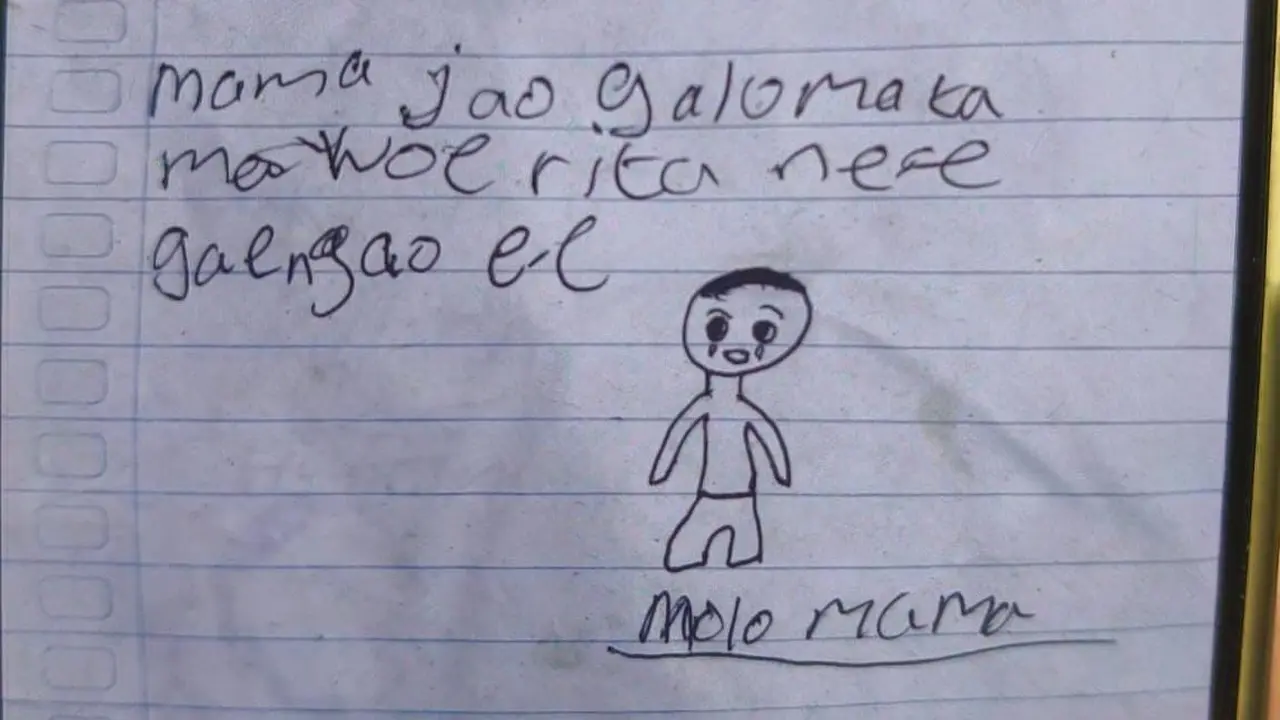 mama jao galo mata
ma woe rita nee
gaengao e-e
molo mama